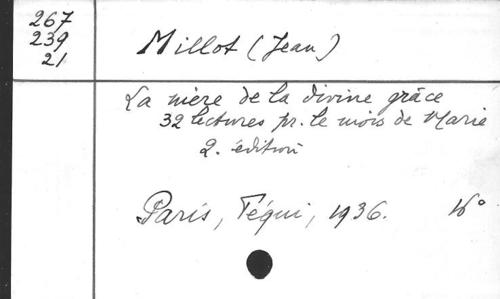 267
239
21
Millot (Jean)
La mère de la divine grâce
32 lectures pr. le mois de Marie
2. édition
Paris, Téqui, 1936. 16°